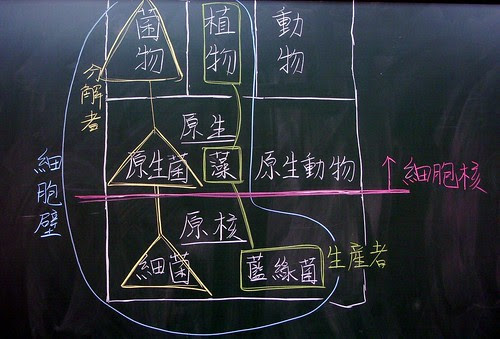 菌物
植物
動物
分解者
原生
原生菌
藻
原生動物
細胞壁
細胞核
原核
細菌
藍綠菌
生産者